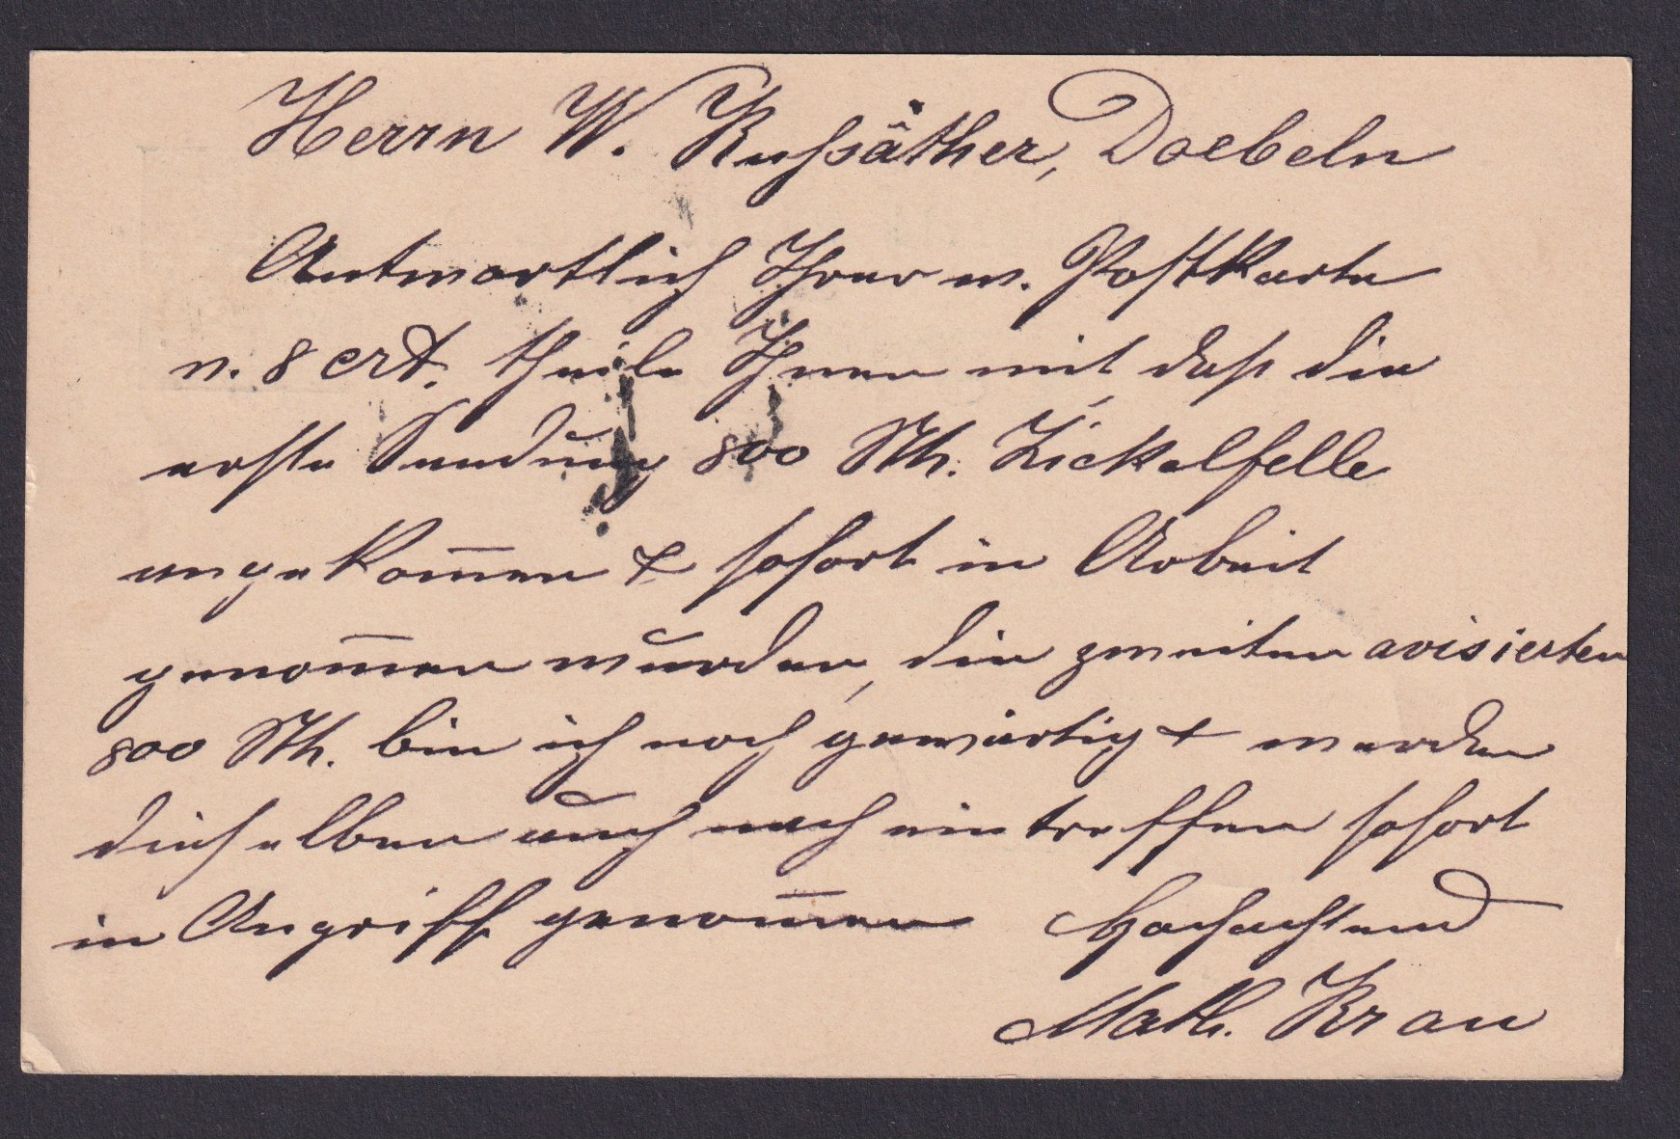 Herrn W. Rußäther, Doebeln
Antwortlich Ihrer w. Postkarte
v. 8 crt. theile Ihnen mit, daß die
erste Sendung 800 Stk. Zickelfelle
angekom̅en & sofort in Arbeit
genom̅en wurden, die zweiten avisierten
800 Stk. bin ich noch gewärtig & werden
dieselben auch nach eintreffen sofort
in Angriff genom̅en Hochachtend
Math. Krau